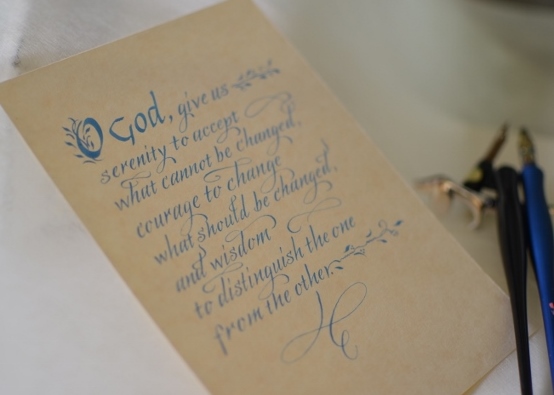 O God, give us
serenity to accept
what cannot be changed,
courage to change
what should be changed,
and wisdom
to distinguish the one
from the other.